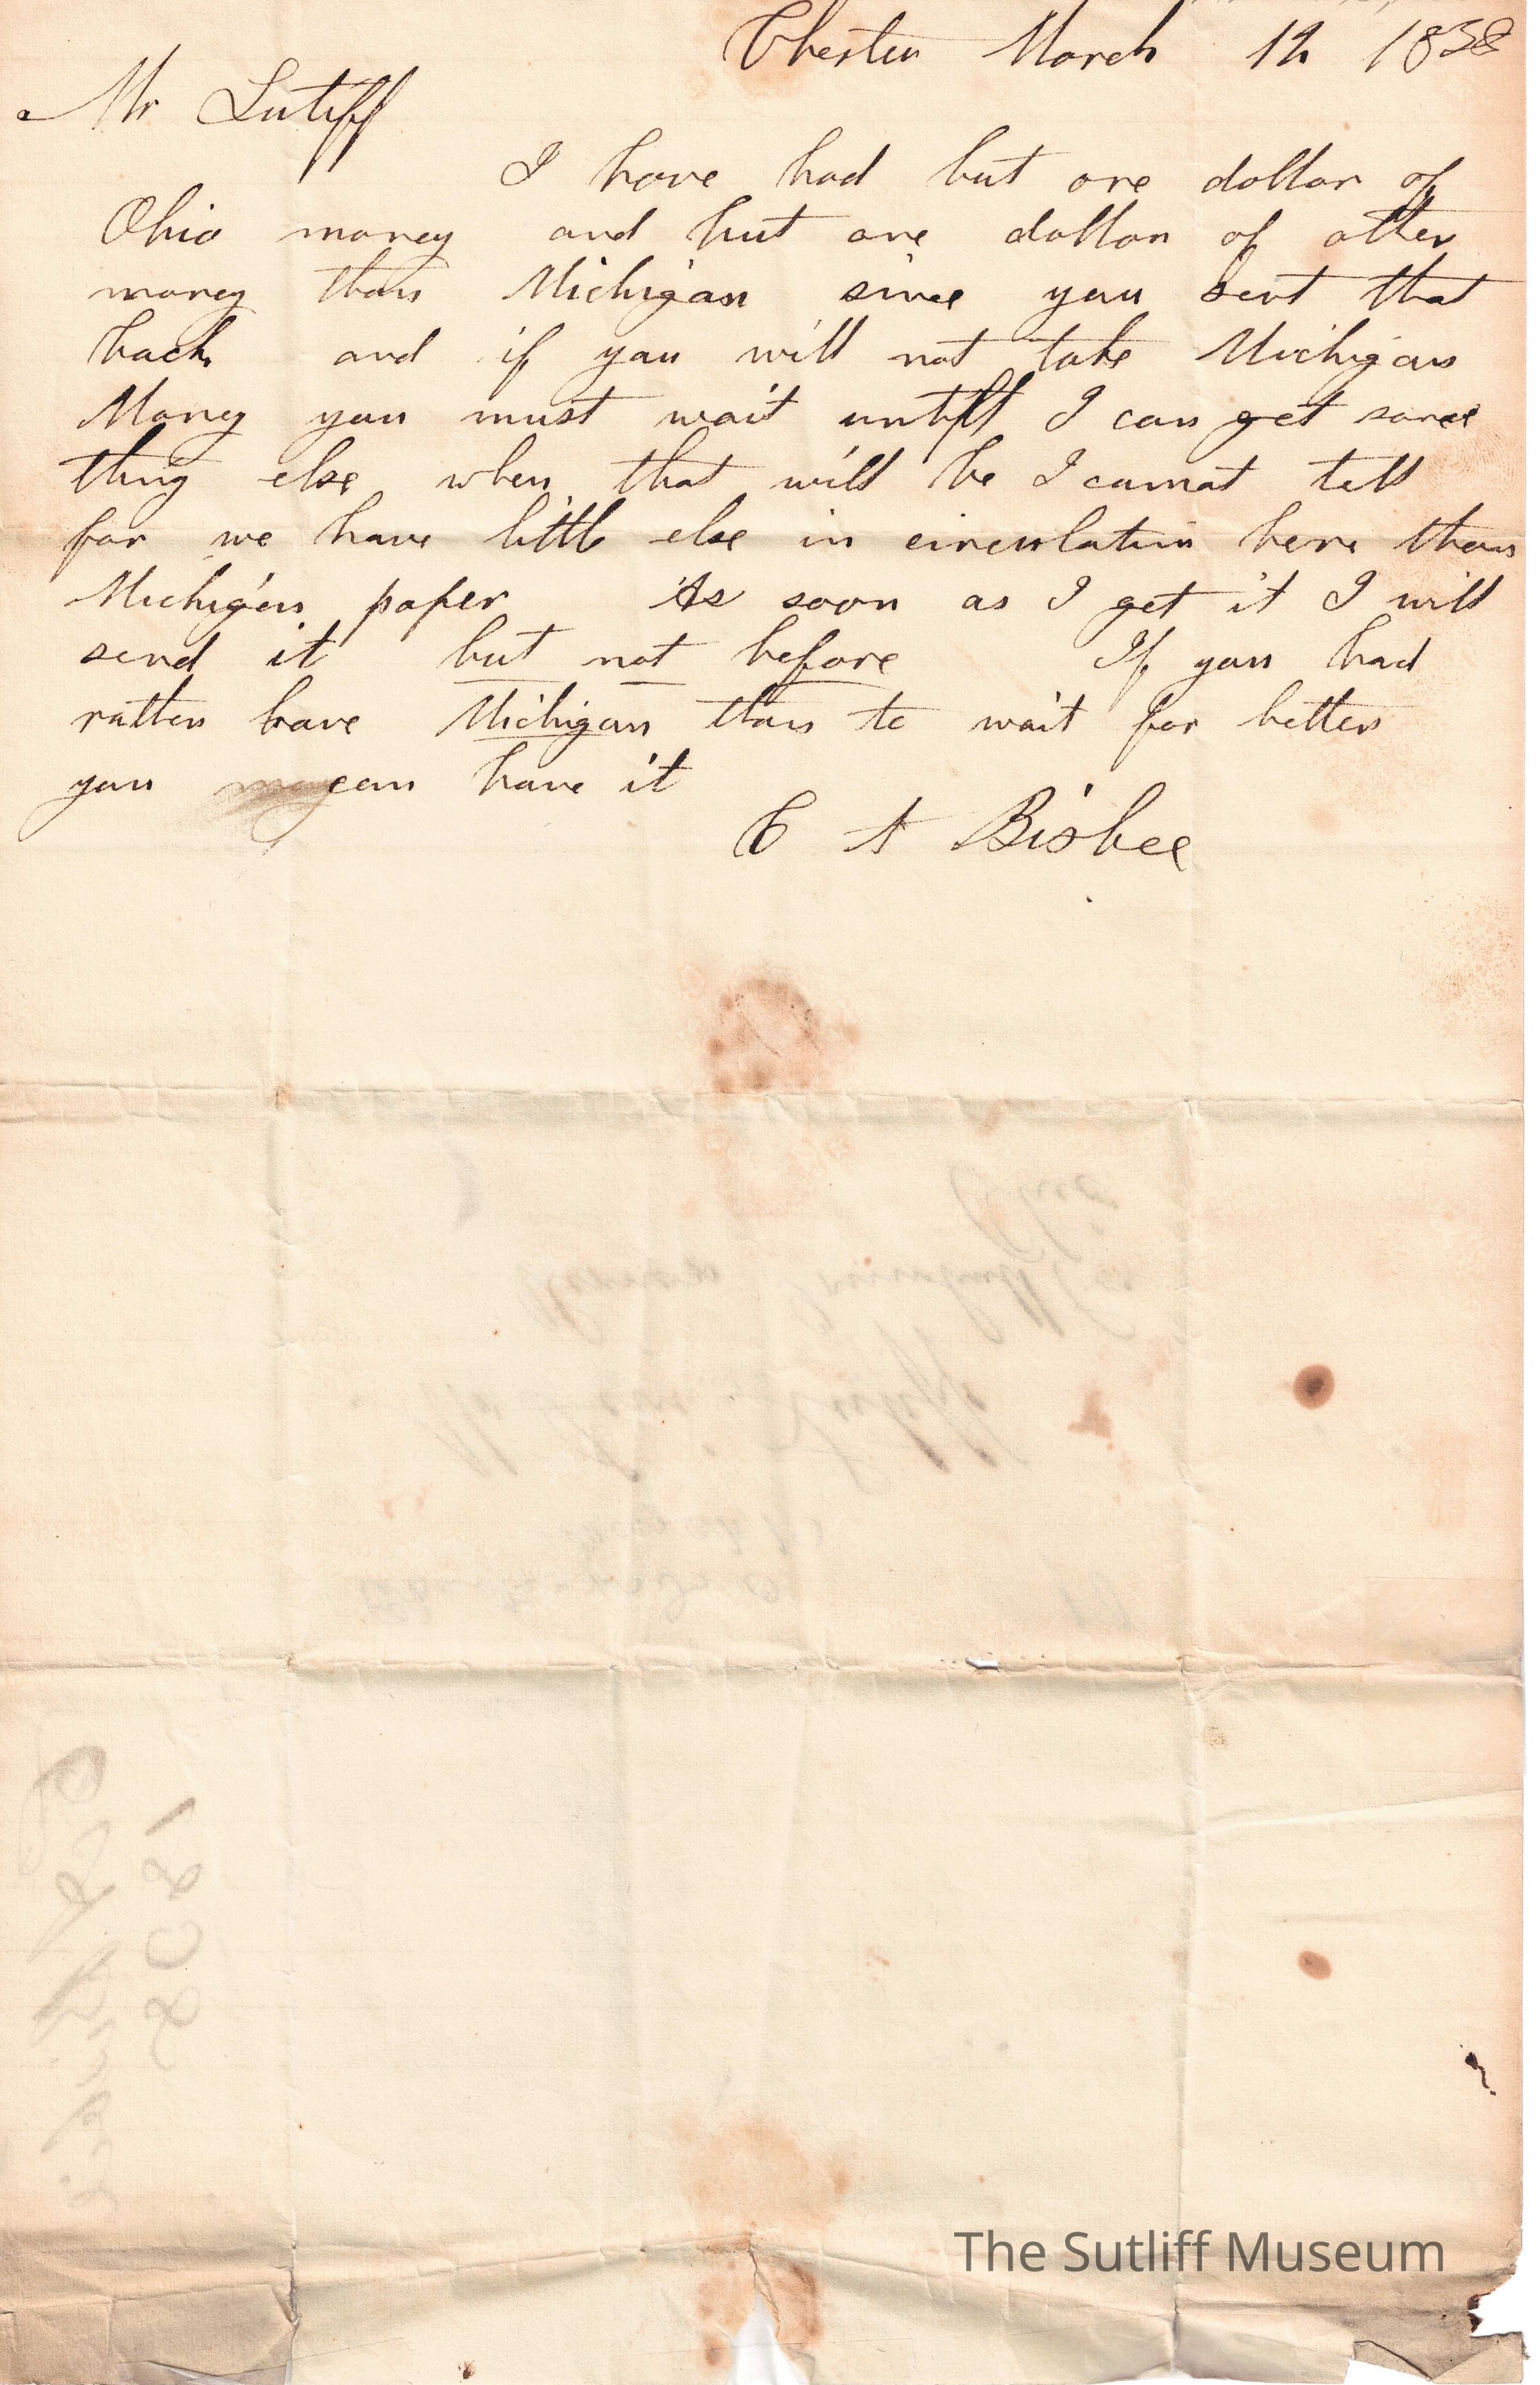 Chester March 12 1838
Mr Sutiff
I have had but one dollar of
Ohio money and but one dollar of other
money than Michigan since you sent that
back and if you will not take Michigan
Money you must wait untill I can get some
thing else when that will be I cannot tell
for we have little else in circulation here than
Michigan paper As soon as I get it I will
send it but not before If you had
rather have Michigan than to wait for better
you can have it
C A Bisbee
The Sutliff Museum